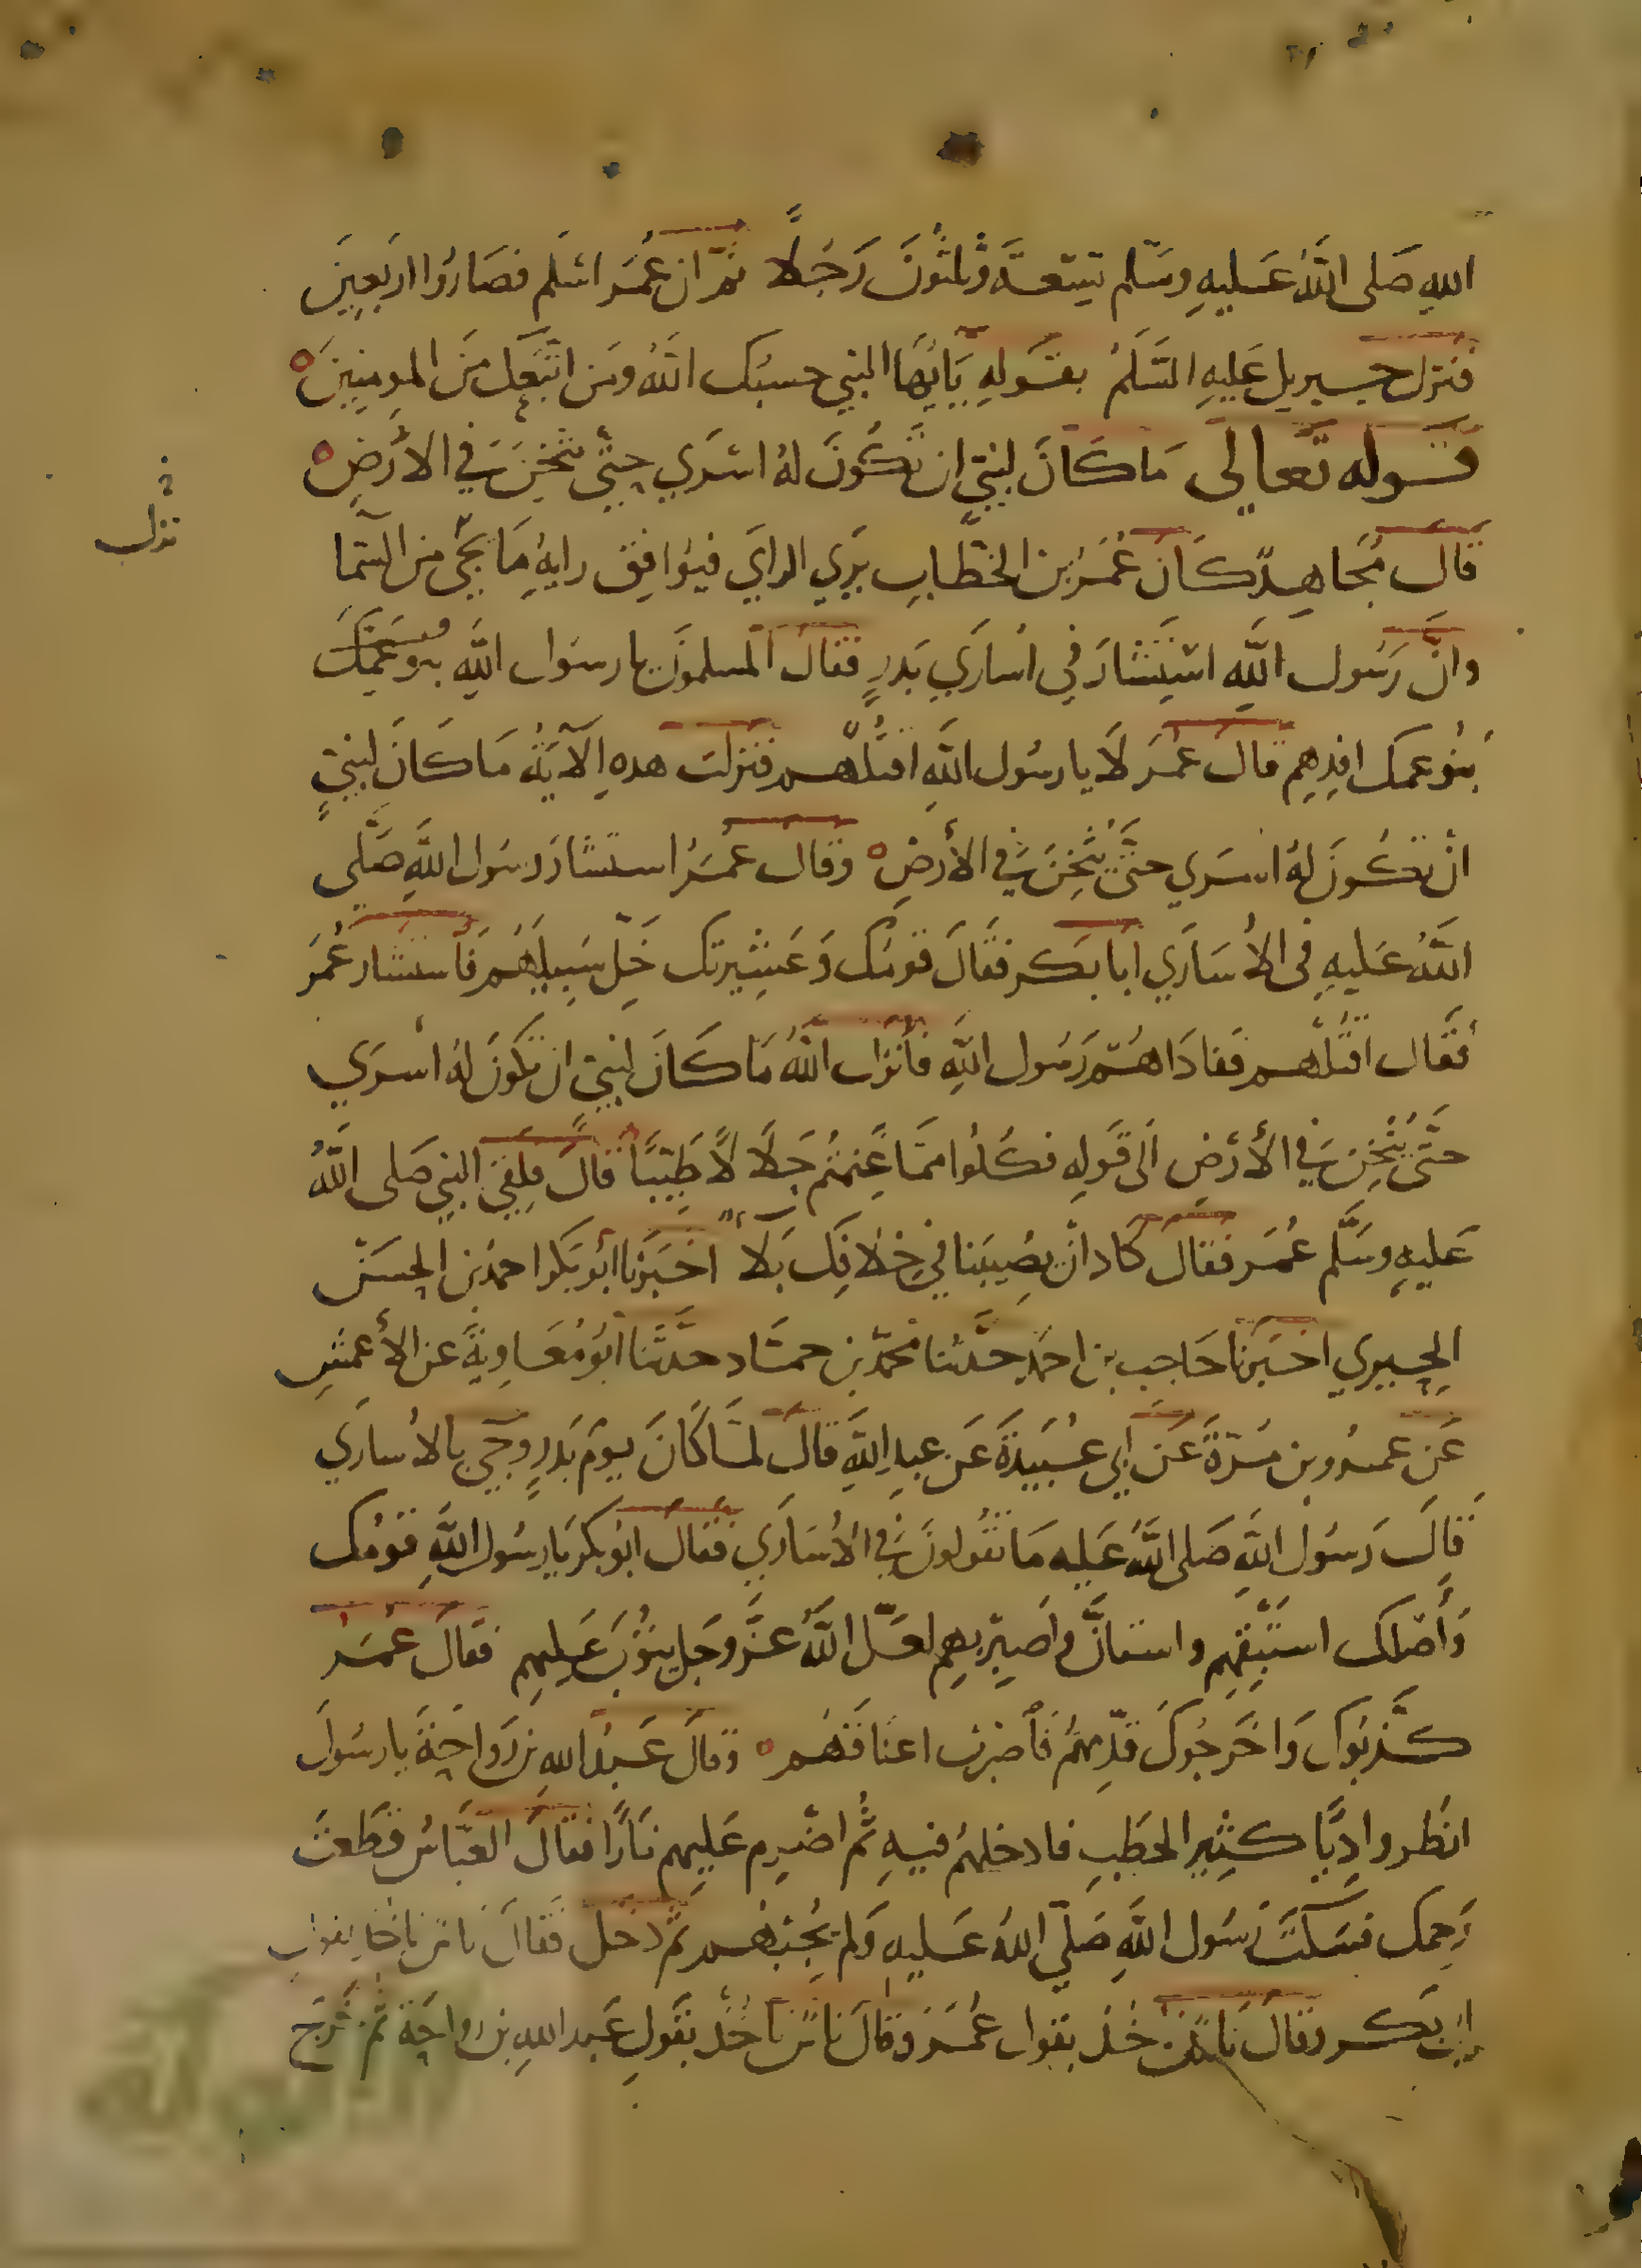 الله صَلى اللهُ عَليهِ وسَلم تِسعَة وثلثونَ رَجُلًا ثمّ ان عُمَر اسْلَم فصَارُوا اربَعِينَ
فنزل جبريل عَليهِ السَّلَمُ بقَولهِ يَايُّهَا النبي حسبُك اللهُ ومَن اتبَعَك منَ المومِنِينَ ه
قوله تعالى مَا كَانَ لنبيّ ان تكُونَ لهُ اسْرَي حتّي يثخِنَ في الارضِ ه
قالَ مُجَاهِدٌ كانَ عُمَرُ بن الخطّابِ يَرَي الرايَ فيُوَافِقُ رايهُ مَا يجيُ من السَّما
نزل
وانَّ رَسُول اللهِ اسْتَشَارَ في اسَارَي بَدرٍ فقالَ المسلمونَ يا رسوَل اللهِ بنو عَمِّكَ
بنُو عمك افدِهِم قالَ عُمَرَ لَا يا رسُول اللهِ اقتُلهُم فنزلت هذهِ الآيَةُ مَا كانَ لنبيٍّ
انْ تكُونَ لهُ اسْرَي حتَّي يُثخِنَ في الأرضِ ه وقالَ عمَرُ استشارَ رسُول اللهِ صَلّى
اللهُ عَليهِ في الأسَارَي ابا بَكر فقالَ قومُك وَعَشِيرتك خَلِّ سَبِيلَهُم فَاستشارَ عُمَرَ
فقَال اقتُلهُم ففادَاهُم رَسُول اللهِ فأنزَل اللهُ مَا كَانَ لنبيّ ان تكونَ لهُ اسْرَي
حتّى يُثخِنَ في الأرضِ الى قَولِه فكُلُوا ممَّا غَنِمتُم حَلَالًا طَيِّبًا قالَ فلِقيَ النبي صَلى اللهُ
عَليهِ وسَلَّم عُمَر فقالَ كادَ انْ يصُيبَنا في خِلافِكَ بَلا اخبَرَنا ابُو بَكر احمدُ بن الحسَن
الحِيرِي اخبَرَنا حَاجب بن احمَد حدَّثنا محمدُ بن حمَّاد حدَّثنا ابُو مُعَاوِيَةَ عن الأعمَشِ
عَن عَمرو بن مُرّةَ عَن ابي عُبَيدَةَ عَن عبدِ اللهِ قالَ لمَّا كانَ يومَ بَدرٍ وجيَ بالأسارَي
قالَ رَسُول اللهِ صَلى اللهُ عَليه مَا تقُولونَ في الأسَارَي فقالَ ابُو بَكر يا رسُولَ اللهِ قومُك
وَأصْلك استَبقِهِم واستانّ واصِبر بهِم لعَلّ اللهُ عزّ وجَل يتُوبَ عَليهم فقالَ عُمَرُ
كذّبُوكَ وَاخرَجُوكَ قدِّمهُم فَأضرِب اعنَاقهُم ه وقالَ عَبدُ اللهِ بن رَوَاحَةَ يا رسُولَ
انظر وادِيًا كثِيرَ الحَطبِ فادخلهُم فيهِ ثُم اضرِم عَليهِم نارًا فقالَ العَبَّاسُ قطعتَ
رَحِمك فسَكتَ رَسُول اللهِ صَلّي اللهُ عَليهِ ولم يُجِبهُم ثم دَخلَ فقالَ ناسٌ ياخذ بقول
ابي بكر وقالَ ناسٌ ياخُذ بقول عُمَر وقالَ ناسٌ ياخُذ بقَولِ عَبد اللهِ بن رواحَةَ ثم خرَج